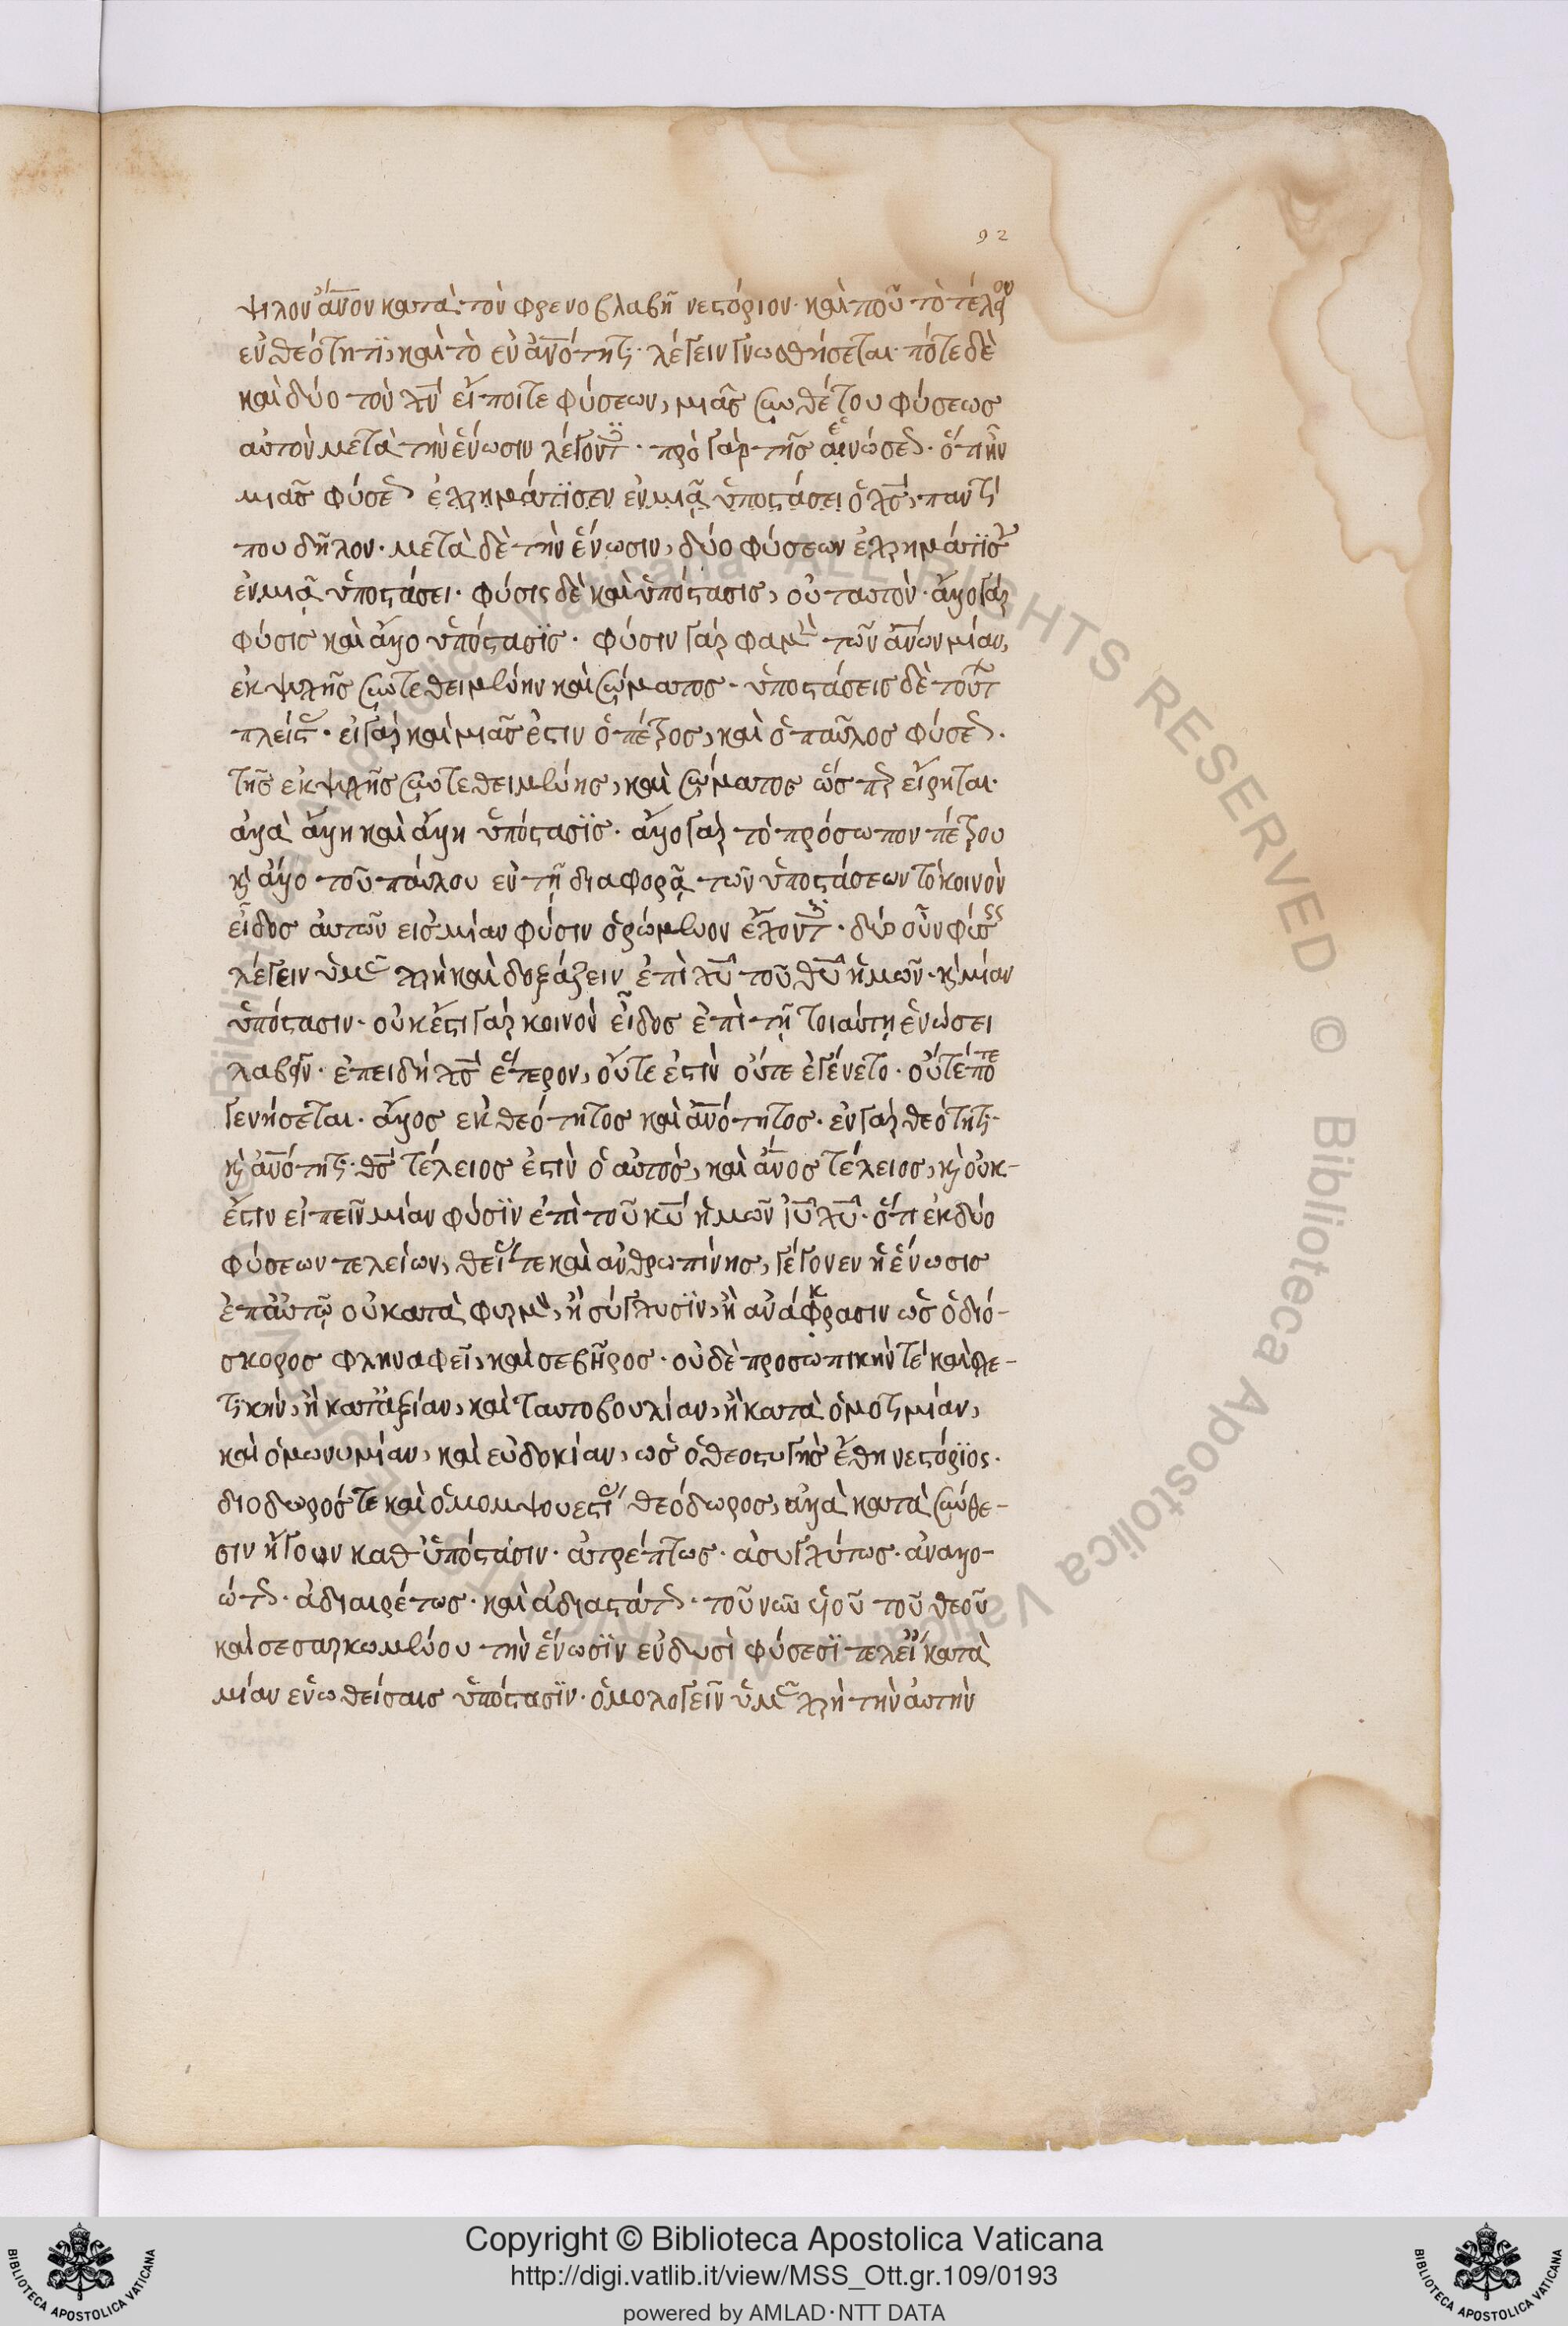 92
ψιλὸν ἄνον κατὰ τὸν φρενοβλαβῆ νεστόριον· καὶ ποῦ τὸ τέλειον
ἐν θεότητι, καὶ τὸ ἐν ἀνότητι λέγειν γνωσθήσεται· πότε δὲ
καὶ δύο τὸν χν εἴποιτε φύσεων, μιᾶς συνθέτου φύσεως
αὐτὸν μετὰ τὴν ἕνωσιν λέγοντες· πρὸ γὰρ τῆς ἑνώσεως· ὅτι
μιᾶς φύσεως ἐχρημάτισεν ἐν μιᾷ ὑποστάσει ὁ χς, παντί
που δῆλον· μετὰ δὲ τὴν ἕνωσιν, δύο φύσεων ἐχρημάτισεν
ἐν μιᾷ ὑποστάσει· φύσις δὲ καὶ ὑπόστασις, οὐ ταυτόν· ἄλλο γὰρ
φύσις καὶ ἄλλο ὑπόστασις· φύσιν γὰρ φαμὲν τῶν ἀνων μίαν,
ἐκ ψυχῆς συντεθειμένην καὶ σώματος· ὑποστάσεις δὲ
εἰ γὰρ καὶ μιᾶς ἐστιν ὁ πέτρος, καὶ ὁ παῦλος φύσεως·
τῆς ἐκ ψυχῆς συντεθειμένης, καὶ σώματος ὥσπερ εἴρηται·
ἀλλὰ ἄλλη καὶ ἄλλη ὑπόστασις· ἄλλο γὰρ τὸ πρόσωπον πέτρου
κὶ ἄλλο τοῦ παύλου ἐν τῇ διαφορᾷ τῶν ὑποστάσεων τὸ κοινὸν
εἶδος αὐτῶν εἰς μίαν φύσιν ὁρώμενον ἔχοντες· δύο οὖν φύσεις
λέγειν ὑμᾶς χρὴ καὶ δοξάζειν ἐπὶ χυ τοῦ θυ ἡμῶν· κὶ μίαν
ὑπόστασιν· οὐκ ἔστι γὰρ κοινὸν εἶδος ἐπὶ τῇ τοιαύτῃ ἑνώσει
λαβεῖν· ἐπειδὴ χς ἕτερον, οὔτε ἐστὶν οὔτε ἐγένετο· οὔτέ ποτε
γενήσεται· ἄλλος ἐκ θεότητος καὶ ἀνότητος· ἐν γὰρ θεότητι
κὶ ἀνότητι· θς τέλειος ἐστὶν ὁ αὐτὸς, καὶ ἄνος τέλειος, κὶ οὐκ-
ἔστιν εἰπεῖν μίαν φύσιν ἐπὶ τοῦ κυ ἡμῶν ιυ χυ· ὅτι ἐκ δύο
φύσεων τελείων, θείας τε καὶ ἀνθρωπίνης, γέγονεν ἡ ἕνωσις
ἐπ αὐτῷ οὐ κατὰ φυρμὸν, ἢ σύγχυσιν, ἢ ἀνάκρασιν ὡς ὁ διό-
σκορος φληναφεῖ, καὶ σεβῆρος· οὐδὲ προσωπικὴν τὲ καὶ σχε-
τικὴν, ἢ κατ ἀξίαν, καὶ ταυτοβουλίαν, ἢ κατὰ ὁμοτιμίαν,
καὶ ὁμωνυμίαν, καὶ εὐδοκίαν, ὡς ὁ θεοστυγὴς ἔφη νεστόριος·
διοδωρός τε καὶ ὁ μομψουεστίας θεόδωρος, ἀλλὰ κατὰ σύνθε-
σιν ἤγουν καθ ὑπόστασιν· ἀτρέπτως· ἀσυγχύτως· ἀναλλοι-
ώτως· ἀδιαιρέτως· καὶ ἀδιαστάτως· τοῦ θεοῦ
καὶ σεσαρκωμένου τὴν ἕνωσιν ἐν δυσὶ φύσεσι τελείαις κατὰ
μίαν ἑνωθείσαις ὑπόστασιν· ὁμολογεῖν ὑμᾶς χρὴ τὴν αὐτὴν
Copyright © Biblioteca Apostolica Vaticana
http://digi.vatlib.it/view/MSS_Ott.gr.109/0193
powered by AMLAD·NTT DATA